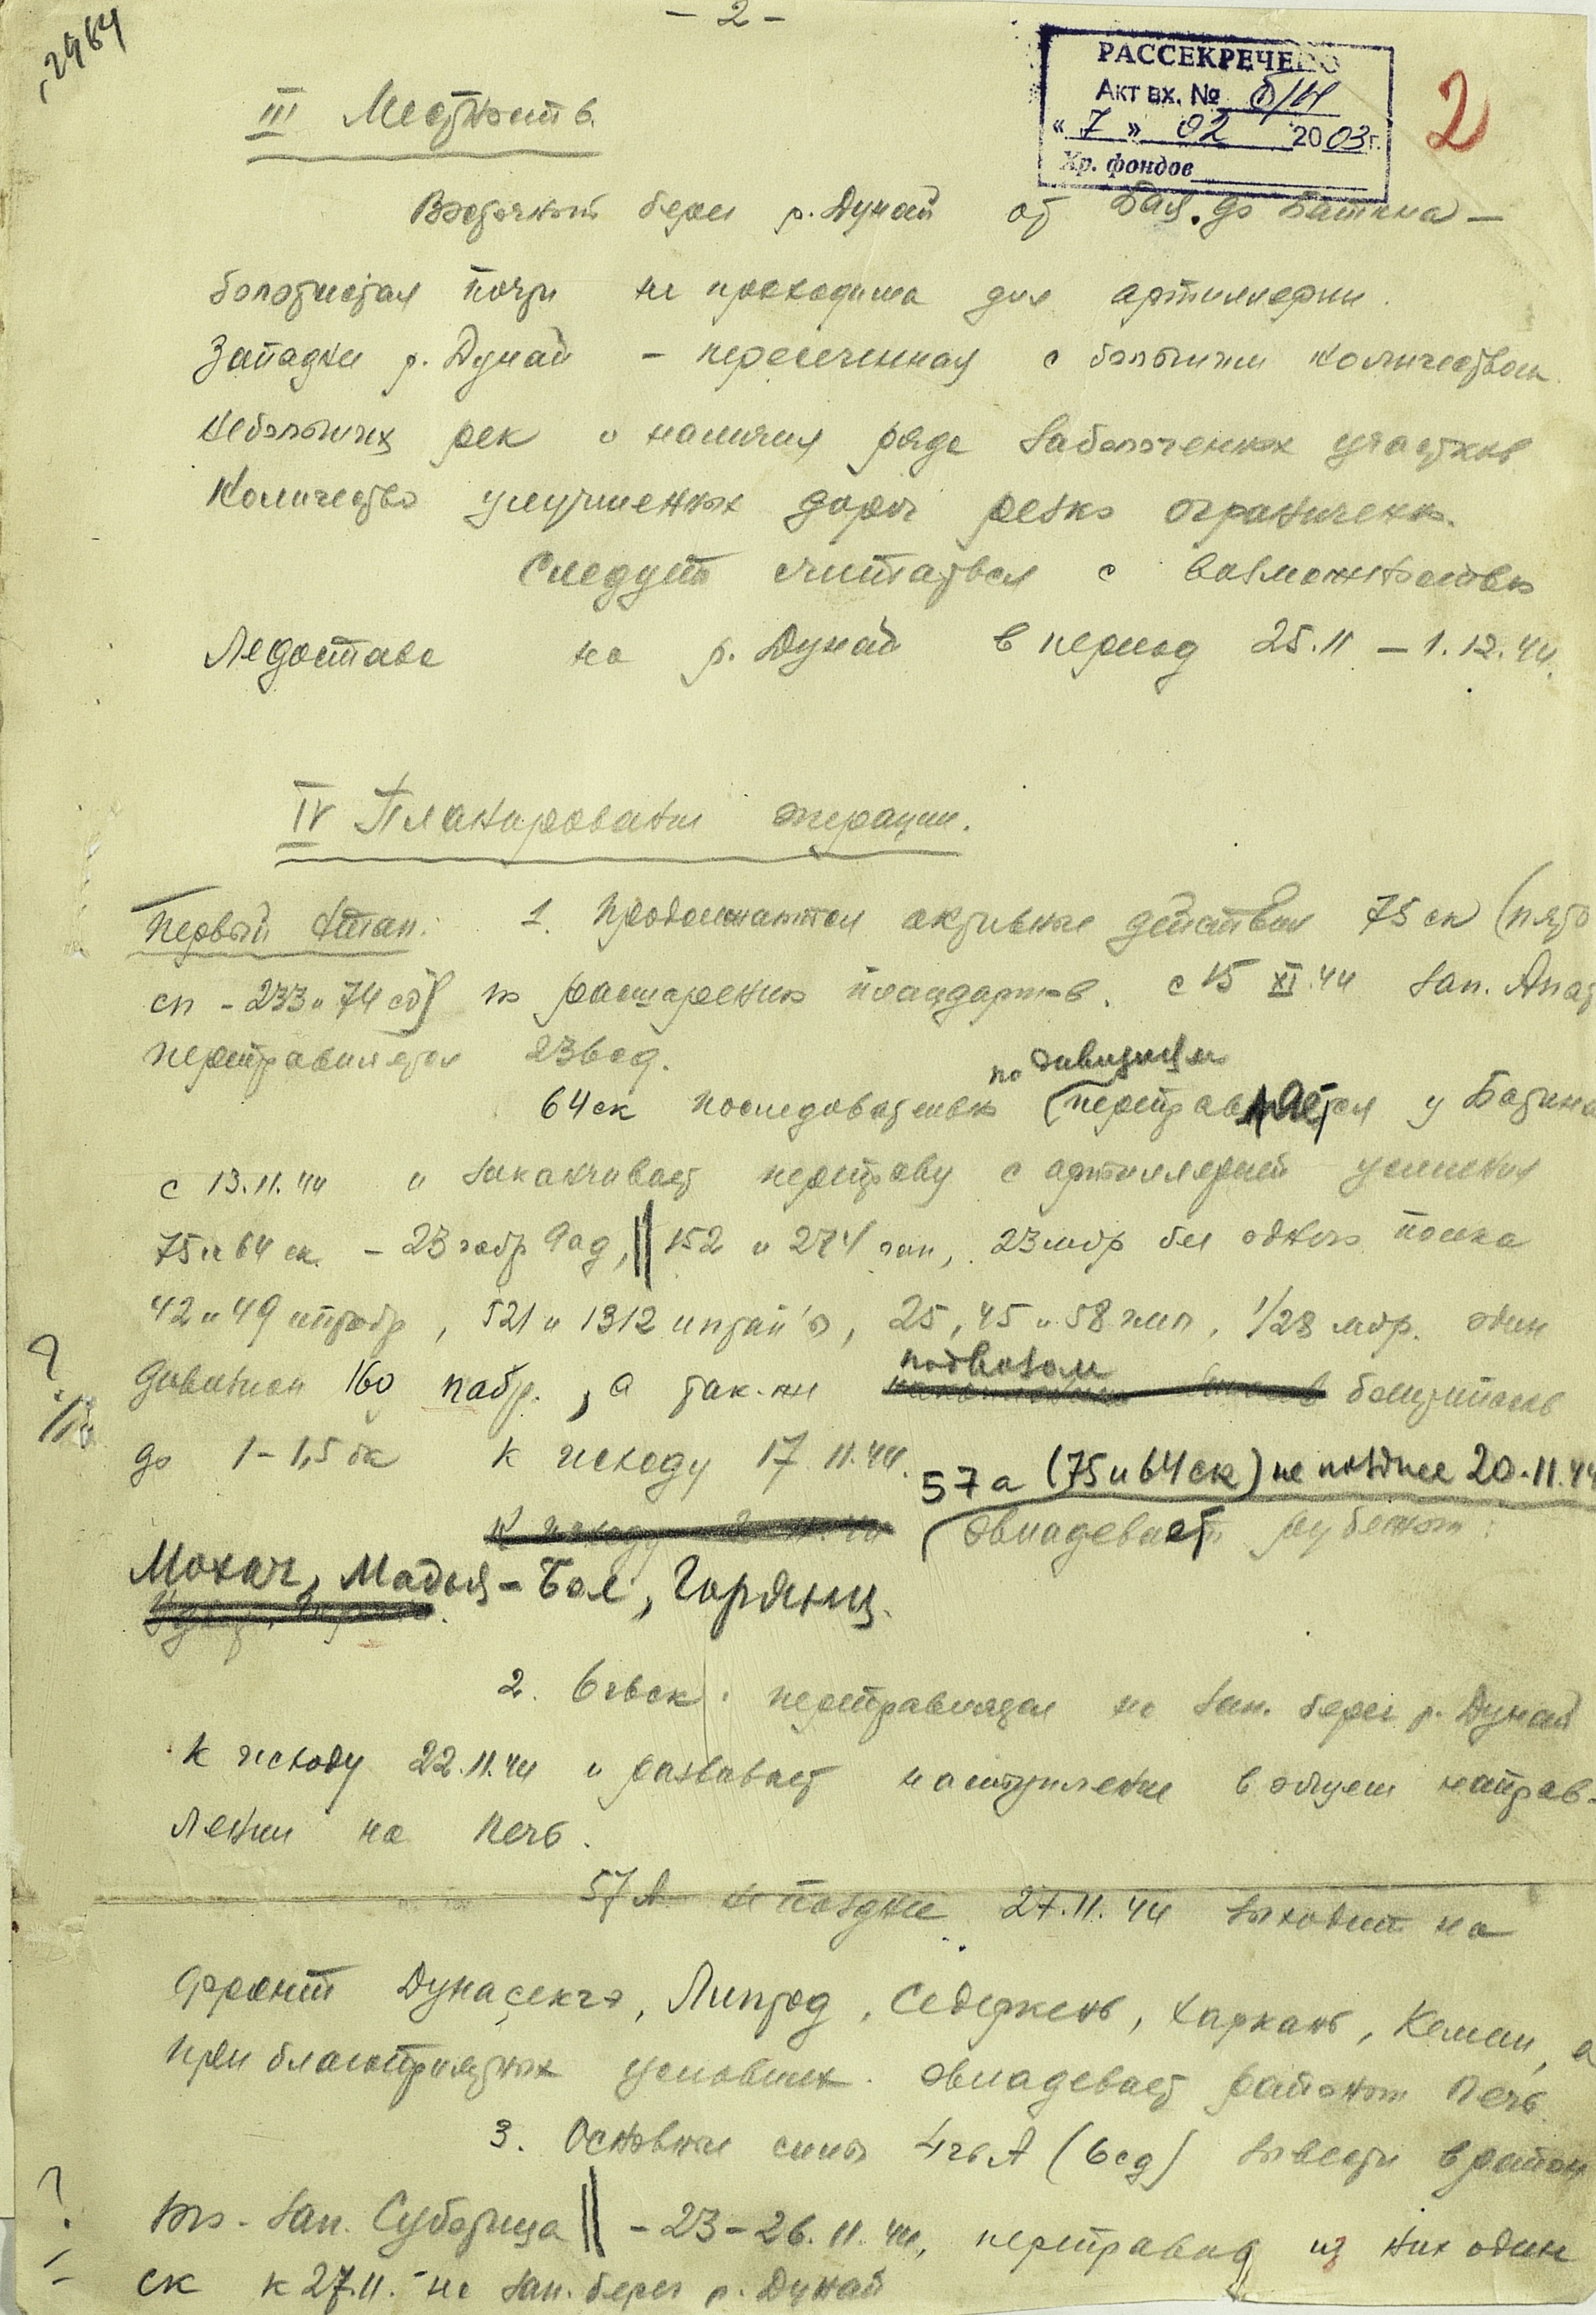 - 2 -
РАССЕКРЕЧЕНО
Акт вх. № б/н
« 7 » 02 2003 г.
Хр. фондов
2
III Местность
Восточный берег р. Дунай от Бая до Батина —
болотистая почти не проходима для артиллерии.
Западнее р. Дунай – пересеченная с большим количеством
небольших рек и наличия ряда заболоченных участков
Количество улучшенных дорог резко ограничено.
Следует считаться с возможностью
Ледостава на р. Дунай в период 25.11 – 1.12.44.
IV Планирование операции.
Первый этап. 1. Продолжаются активные действия 75 ск (пять
сп - 233 и 74 сд) по расширению плацдармов. с 15 XI.44 зап. Апат
переправляется 236 сд.
по дивизиям
64 ск последовательно переправляется у Батина
с 13.11.44 и заканчивает переправу с артиллерией усиления
75 и 64 ск. – 23 габр 9 ад, || 152 и 274 гап, 23 мбр без одного полка
42 и 49 иптабр, 521 и 1312 иптап'ы, 25, 45 и 58 гмп, 1/28 мбр. один
?
дивизион 160 пабр., а так-же
подвозом
боеприпасов
до 1 – 1,5 бк к исходу 17.11.44.
57 а (75 и 64 ск) не позднее 20.11.44
овладевает рубежом:
Мохач, Мадья-Бол, Горянц.
2. 6 гвск. переправляется на зап. берег р. Дунай
к исходу 22.11.44 и развивает наступление в общем направ-
лении на Печ.
57 А не позднее 27.11.44 выходит на
фронт Дунасекчэ, Липтод, Седеркень, Харкань, Кемаи, а
при благоприятных условиях овладевает районом Печ.
3. Основные силы 4 гв А (6 сд) вывести в район
?
юго-зап. Суботица || – 23-26.11.44, переправив из них один
ск к 27.11. на зап. берег р. Дунай